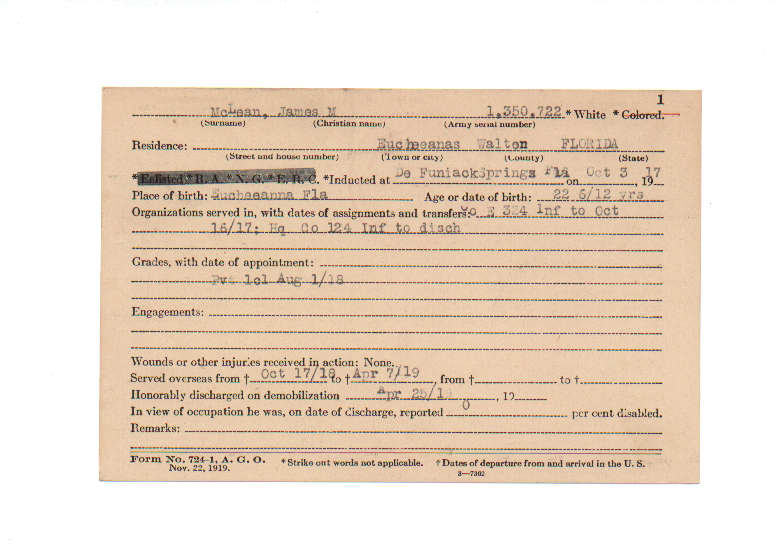 1
McLean, James M 1,350,722 * White * Colored.
(Surname) (Christian name) (Army serial number)
Residence: Eucheeanas Walton FLORIDA
(Street and house number) (Town or city) (County) (State)
* Enlisted * R. A. * N. G. * E. R. C. * Inducted at De FuniackSprings Fla on Oct 3 , 19 17
Place of birth: Eucheeanna Fla Age or date of birth: 22 6/12 yrs
Organizations served in, with dates of assignments and transfers: Co E 334 Inf to Oct
16/17; Hq Co 124 Inf to disch
Grades, with date of appointment:
Pvt 1cl Aug 1/18
Engagements:
Wounds or other injuries received in action: None.
Served overseas from † Oct 17/18 to † Apr 7/19 , from † to †
Honorably discharged on demobilization Apr 25/19 , 19
In view of occupation he was, on date of discharge, reported 0 per cent disabled.
Remarks:
Form No. 724-1, A. G. O. * Strike out words not applicable. † Dates of departure from and arrival in the U. S.
Nov. 22, 1919. 3—7302